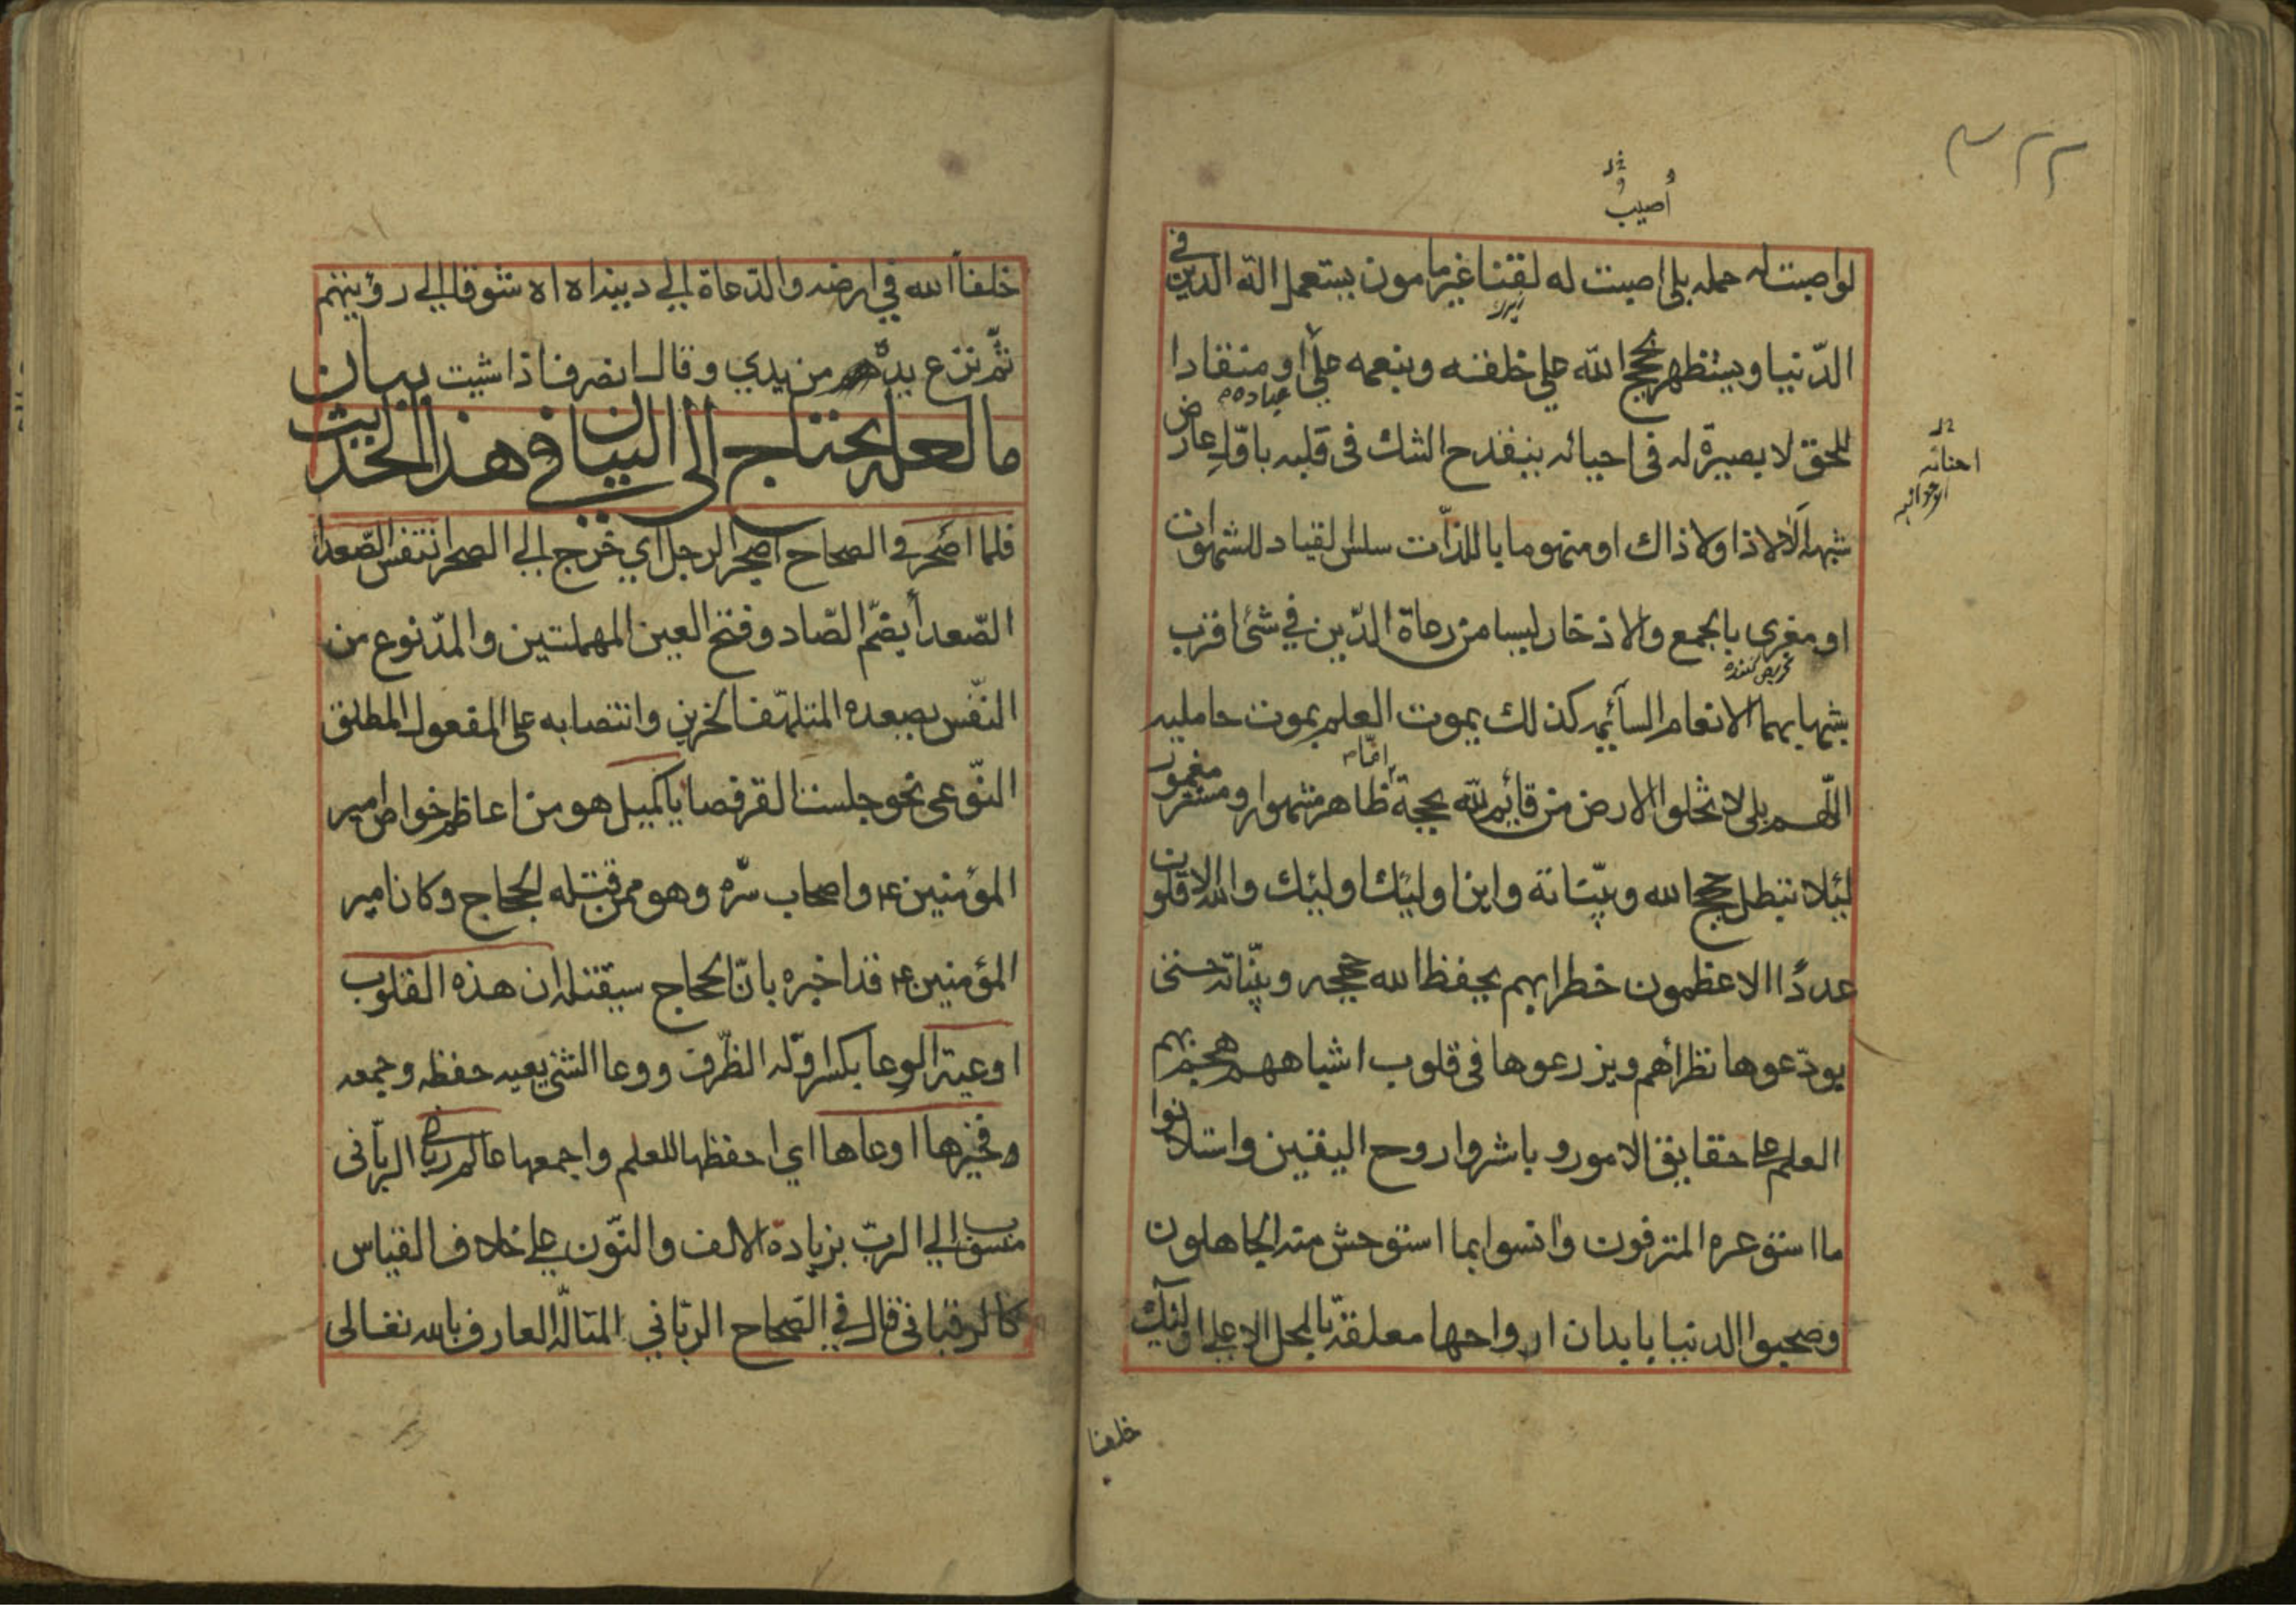 ٣٢٢
أصيب
خ ل
لو اصبت له حمله بلى اصبت له لقنا غير مامون يستعمل الة الدين في
الدّنيا ويستظهر بحجج الله على خلقه وبنعمه على عباده او منقادا
للحق لا بصيرة له في احيائه ينقدح الشك في قلبه باوّل عارض
خ ل
احنائه
شبهة الا لا ذا ولا ذاك او منهوما باللذّات سلس القياد للشهوات
او مغرى بالجمع والاذخار ليسا من رعاة الدّين في شئ اقرب
شبها بهما الانعام السائمه كذلك يموت العلم بموت حامليه
اللّهم بلى لا تخلوا الارض من قايم لله بحجة اما ظاهر مشهور او مستتر مغمور
لئلا تبطل حجج الله وبيّناته واين اولئك اولئك والله الاقلون
عددًا الاعظمون خطرا بهم يحفظ الله حججه وبيّناته حتى
يودّعوها نظرائهم ويزرعوها في قلوب اشباههم هجم بهم
العلم على حقايق الامور وباشروا روح اليقين واستلانوا
ما استوعره المترفون وانسوا بما استوحش منه الجاهلون
وصحبوا الدنيا بابدان ارواحها معلقة بالمحل الاعلى اولئك
خلفا
خلفاء الله في ارضه والدّعاة الى دينه اه اه شوقا الى رؤيتهم
ثمّ نزع يده من يدي وقال انصرف اذا شيت بيان
ما لعله يحتاج الى البيان في هذا الحديث
فلما اصحر في الصحاح اصحر الرجل اي خرج الى الصحرا تنفس الصّعدا
الصّعدأ بضمّ الصّاد وفتح العين المهملتين والمدّ نوع من
النّفس يصعده المتلهّف الحزين وانتصابه على المفعول المطلق
النّوعى نحو جلست القرفصا يا كميل هو من اعاظم خواص امير
المؤمنين ع واصحاب سرّه وهو ممن قتله الحجاج وكان امير
المؤمنين ع قد اخبره بانّ الحجاج سيقتله ان هذه القلوب
اوعية الوعا بكسر اوّله الظّرف ووعا الشئ يعيه حفظه وجمعه
وفخيرها اوعاها اي احفظها للعلم واجمعها عالم ربانى الربّانى
منسوب الى الربّ بزيادة الالف والنّون على خلاف القياس
كالرقبانى قال في الصّحاح الربّاني المتالّه العارف بالله تعالى